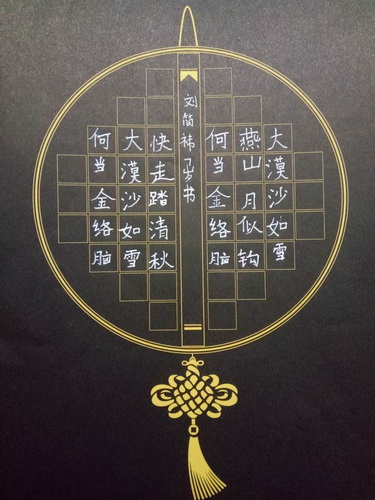 大漠沙如雪
燕山月似钩
何当金络脑
刘简祎7岁书
快走踏清秋
大漠沙如雪
何当金络脑